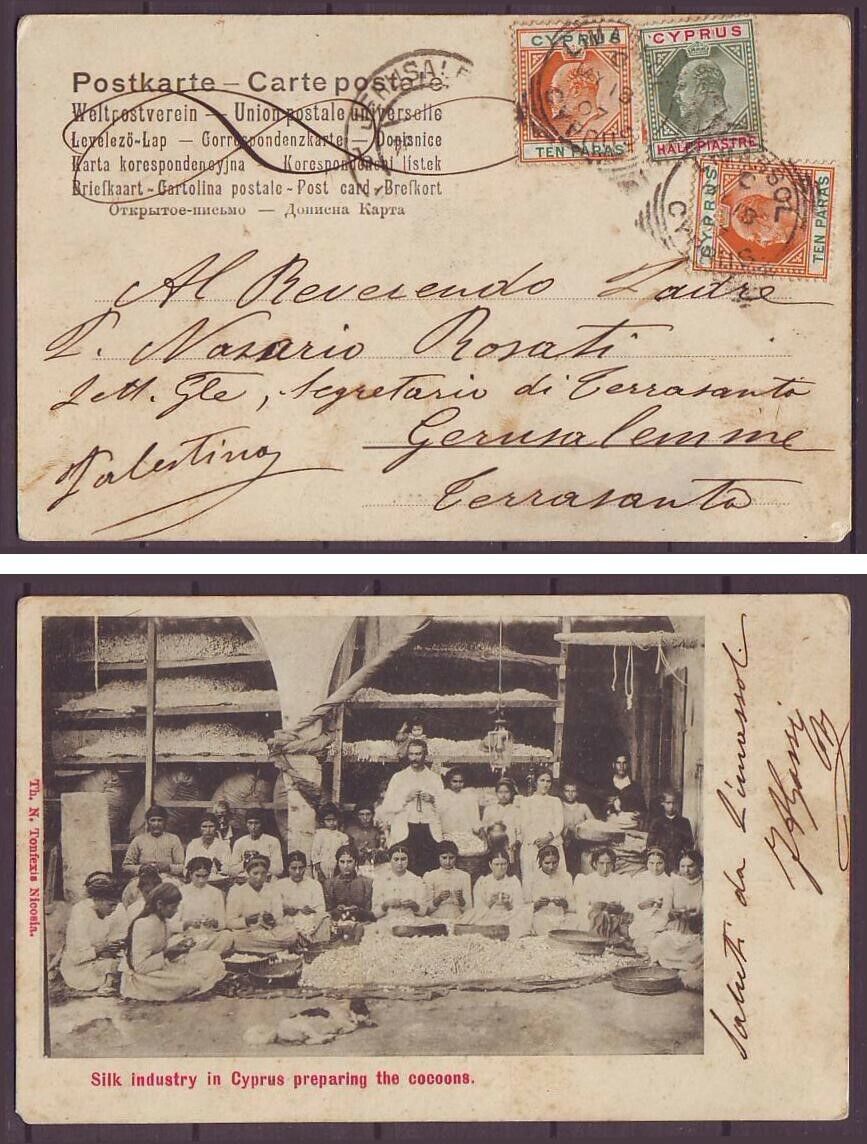 Postkarte – Carte postale
Weltpostverein — Union postale universelle
Levelező-Lap — Correspondenzkarte — Dopisnice
Karta korespondencyjna — Korespondenčni lístek
Briefkaart - Cartolina postale - Post card - Brefkort
Открытое-письмо — Дописна Карта
JERUSALEM
CYPRUS
TEN PARAS
CYPRUS
HALF PIASTRE
CYPRUS
TEN PARAS
LIMASSOL
CYPRUS
Al Reverendo Padre
P. Nasario Rosati
Lett. Gle, Segretario di Terrasanta
Gerusalemme
Palestina
Terrasanta
Th. N. Toufexis Nicosia.
Silk industry in Cyprus preparing the cocoons.
Saluti da Limassol.